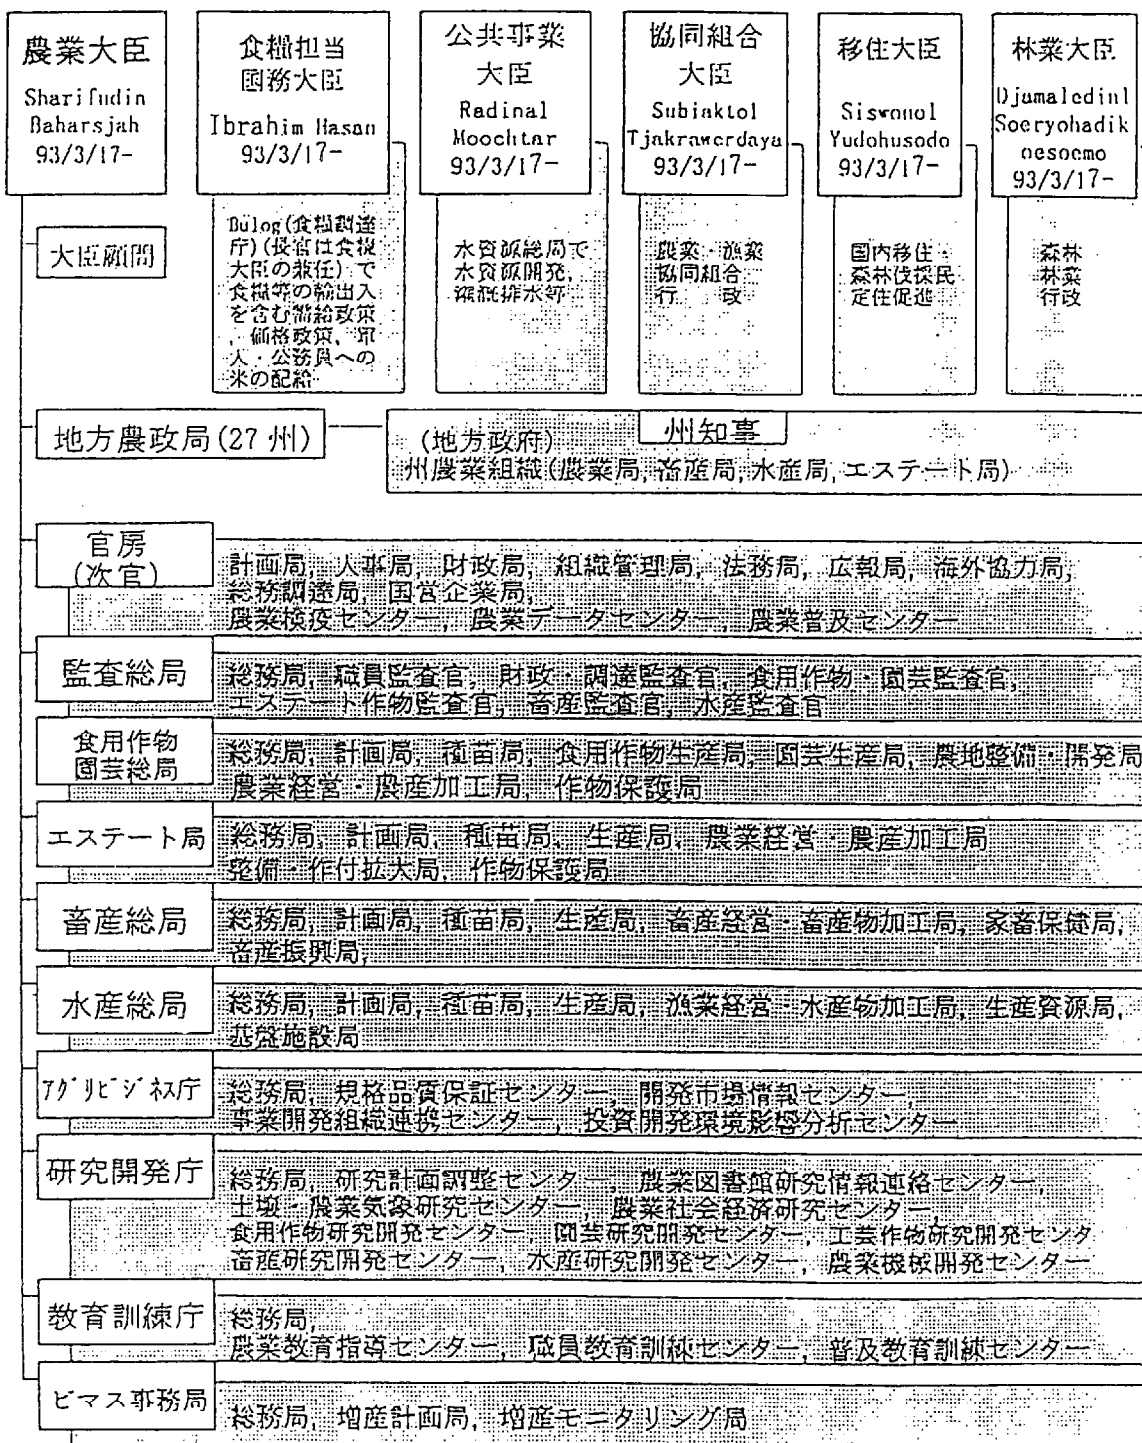 農業大臣
Sharifudin
Baharsjah
93/3/17-
食糧担当
国務大臣
Ibrahim Hasan
93/3/17-
公共事業
大臣
Radinal
Moochtar
93/3/17-
協同組合
大臣
Subiaktol
Tjakrawerdaya
93/3/17-
移住大臣
Siswonol
Yudohusodo
93/3/17-
林業大臣
Djamaledinl
Soeryohadik
oesoemo
93/3/17-
大臣顧問
Bulog(食糧調達
庁)(長官は食糧
大臣の兼任)で
食糧等の輸出入
を含む需給政策
, 価格政策, 軍
人・公務員への
米の配給
水資源総局で
水資源開発,
灌漑排水等
農業・漁業
協同組合
行 政
国内移住・
森林伐採民
定住促進
森林
林業
行政
地方農政局(27州)
州知事
(地方政府)
州農業組織(農業局, 畜産局, 水産局, エステート局)
官房
(次官)
計画局, 人事局, 財政局, 組織管理局, 法務局, 広報局, 海外協力局,
総務調達局, 国営企業局,
農業検疫センター, 農業データセンター, 農業普及センター
監査総局
総務局, 職員監査官, 財政・調達監査官, 食用作物・園芸監査官,
エステート作物監査官, 畜産監査官, 水産監査官
食用作物
園芸総局
総務局, 計画局, 種苗局, 食用作物生産局, 園芸生産局, 農地整備・開発局
農業経営・農産加工局, 作物保護局
エステート局
総務局, 計画局, 種苗局, 生産局, 農業経営・農産加工局
整備・作付拡大局, 作物保護局
畜産総局
総務局, 計画局, 種苗局, 生産局, 畜産経営・畜産物加工局, 家畜保健局,
畜産振興局,
水産総局
総務局, 計画局, 種苗局, 生産局, 漁業経営・水産物加工局, 生産資源局,
基盤施設局
アグリビジネス庁
総務局, 規格品質保証センター, 開発市場情報センター,
事業開発組織連携センター, 投資開発環境影響分析センター
研究開発庁
総務局, 研究計画調整センター, 農業図書館研究情報連絡センター,
土壌・農業気象研究センター, 農業社会経済研究センター,
食用作物研究開発センター, 園芸研究開発センター, 工芸作物研究開発センタ
畜産研究開発センター, 水産研究開発センター, 農業機械開発センター
教育訓練庁
総務局,
農業教育指導センター, 職員教育訓練センター, 普及教育訓練センター
ビマス事務局
総務局, 増産計画局, 増産モニタリング局